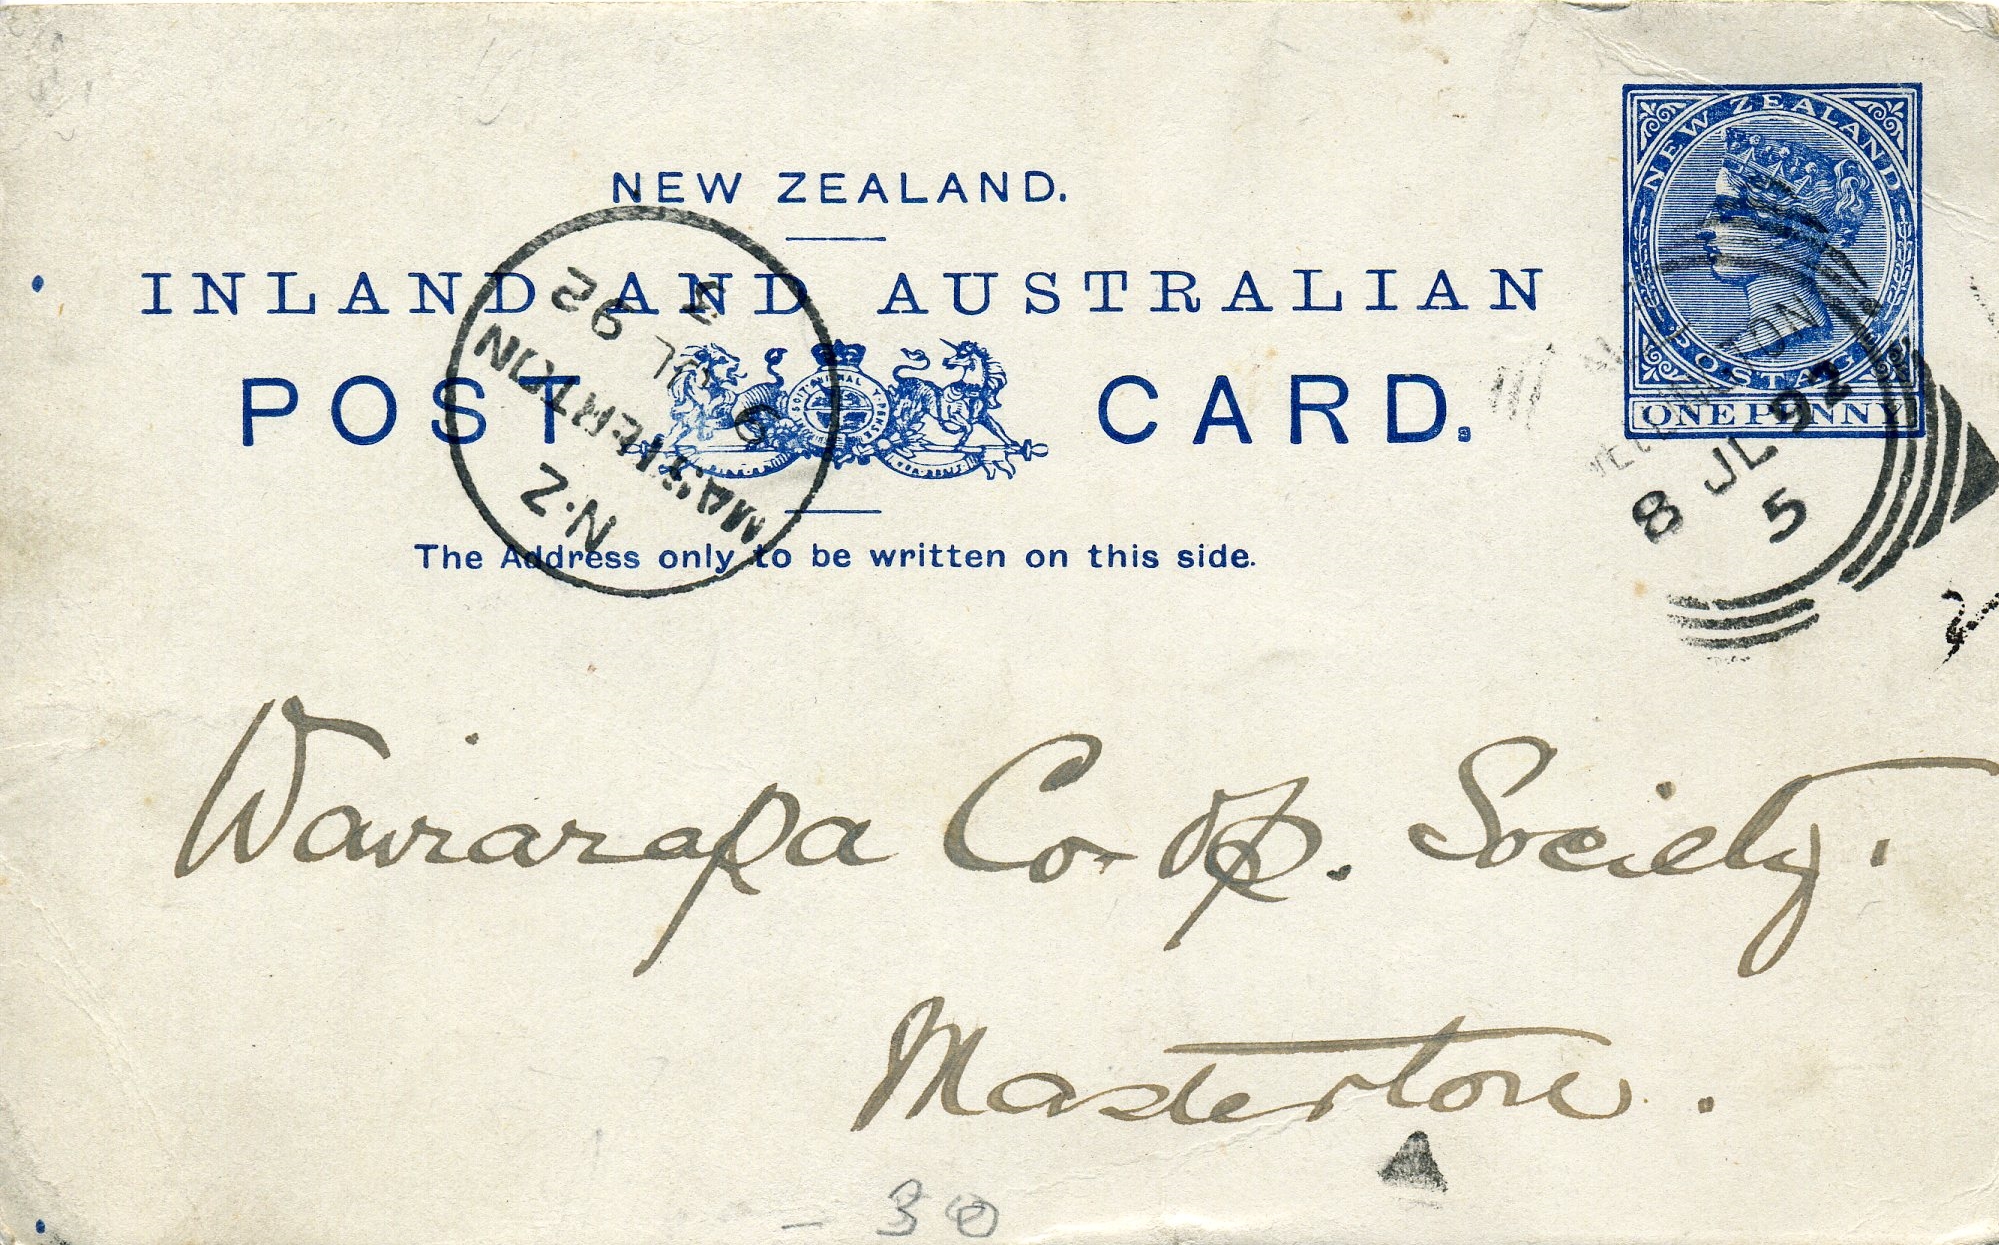 NEW ZEALAND
POSTAGE
ONE PENNY
NEW ZEALAND.
INLAND AND AUSTRALIAN
POST CARD.
The Address only to be written on this side.
MASTERTON
N.Z
3
9 JL 92
8 JL 92
5
Wairarapa Co-op. Society.
Masterton.
- 30